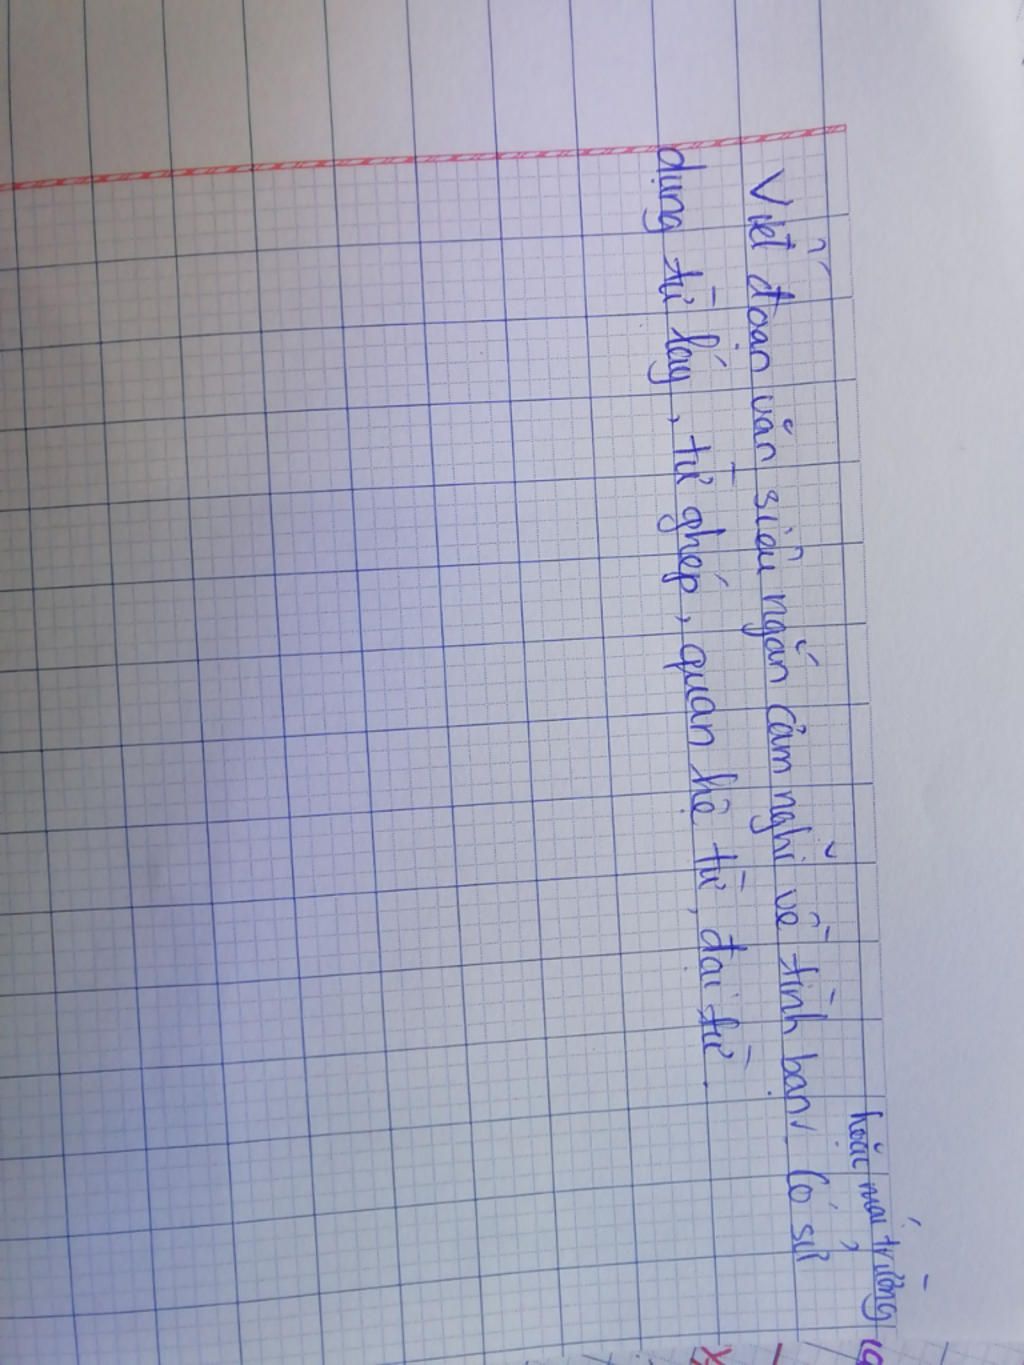 hoặc mái trường
Viết đoạn văn siêu ngắn cảm nghĩ về tình bạn. Có sử
dụng từ láy, từ ghép, quan hệ từ, đại từ.